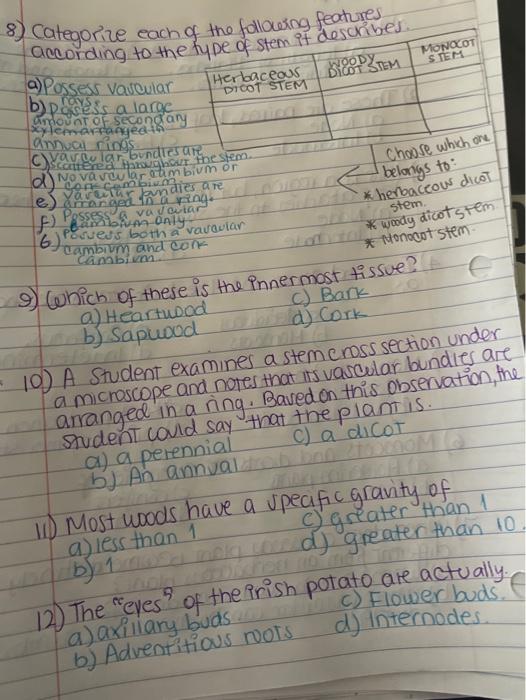 8) Categorize each of the following features
according to the type of stem it describes.
Herbaceous DICOT STEM
WOODY DICOT STEM
MONOCOT STEM
a) Possess vascular
rays
b) possess a large
amount of secondary
xylem arranged in
annual rings
c) vascular bundles are
scattered throughout the stem.
d) No vascular cambium or
cork cambium
e) vascular bundles are
arranged in a ring.
f) Possess a vascular
cambium only.
6) possess both a vascular
cambium and cork
cambium.
Choose which one
belongs to:
* herbaceous dicot
stem.
* woody dicot stem
* Monocot stem.
9) Which of these is the innermost tissue?
a) Heartwood c) Bark
b) Sapwood d) Cork
10) A student examines a stem cross section under
a microscope and notes that its vascular bundles are
arranged in a ring. Based on this observation, the
student could say that the plant is.
a) a perennial c) a dicot
b) An annual
11) Most woods have a specific gravity of
a) less than 1 c) greater than 1
b) 1 d) greater than 10.
12) The "eyes" of the irish potato are actually.
a) axillary buds c) Flower buds.
b) Adventitious roots d) Internodes.